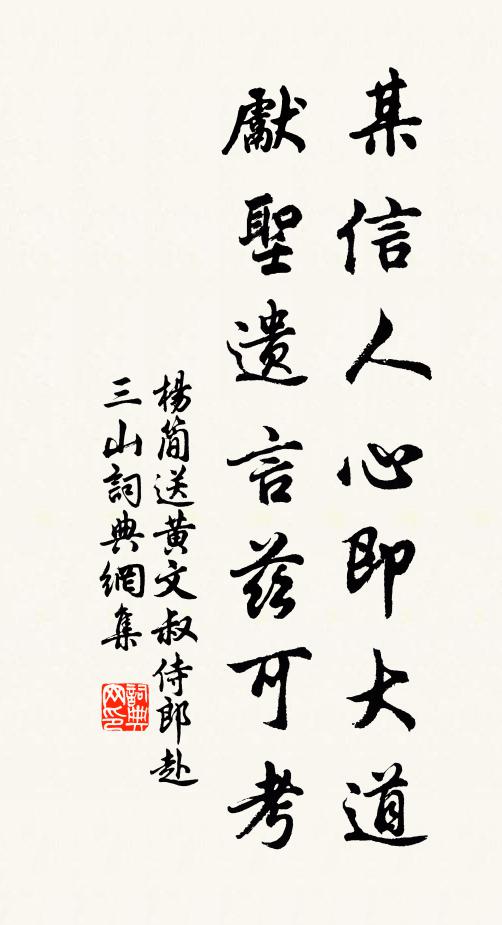 某信人心即大道
獻聖遺言茲可考
楊簡送黄文叔侍郎赴
三山詞典網集
詞典
网印